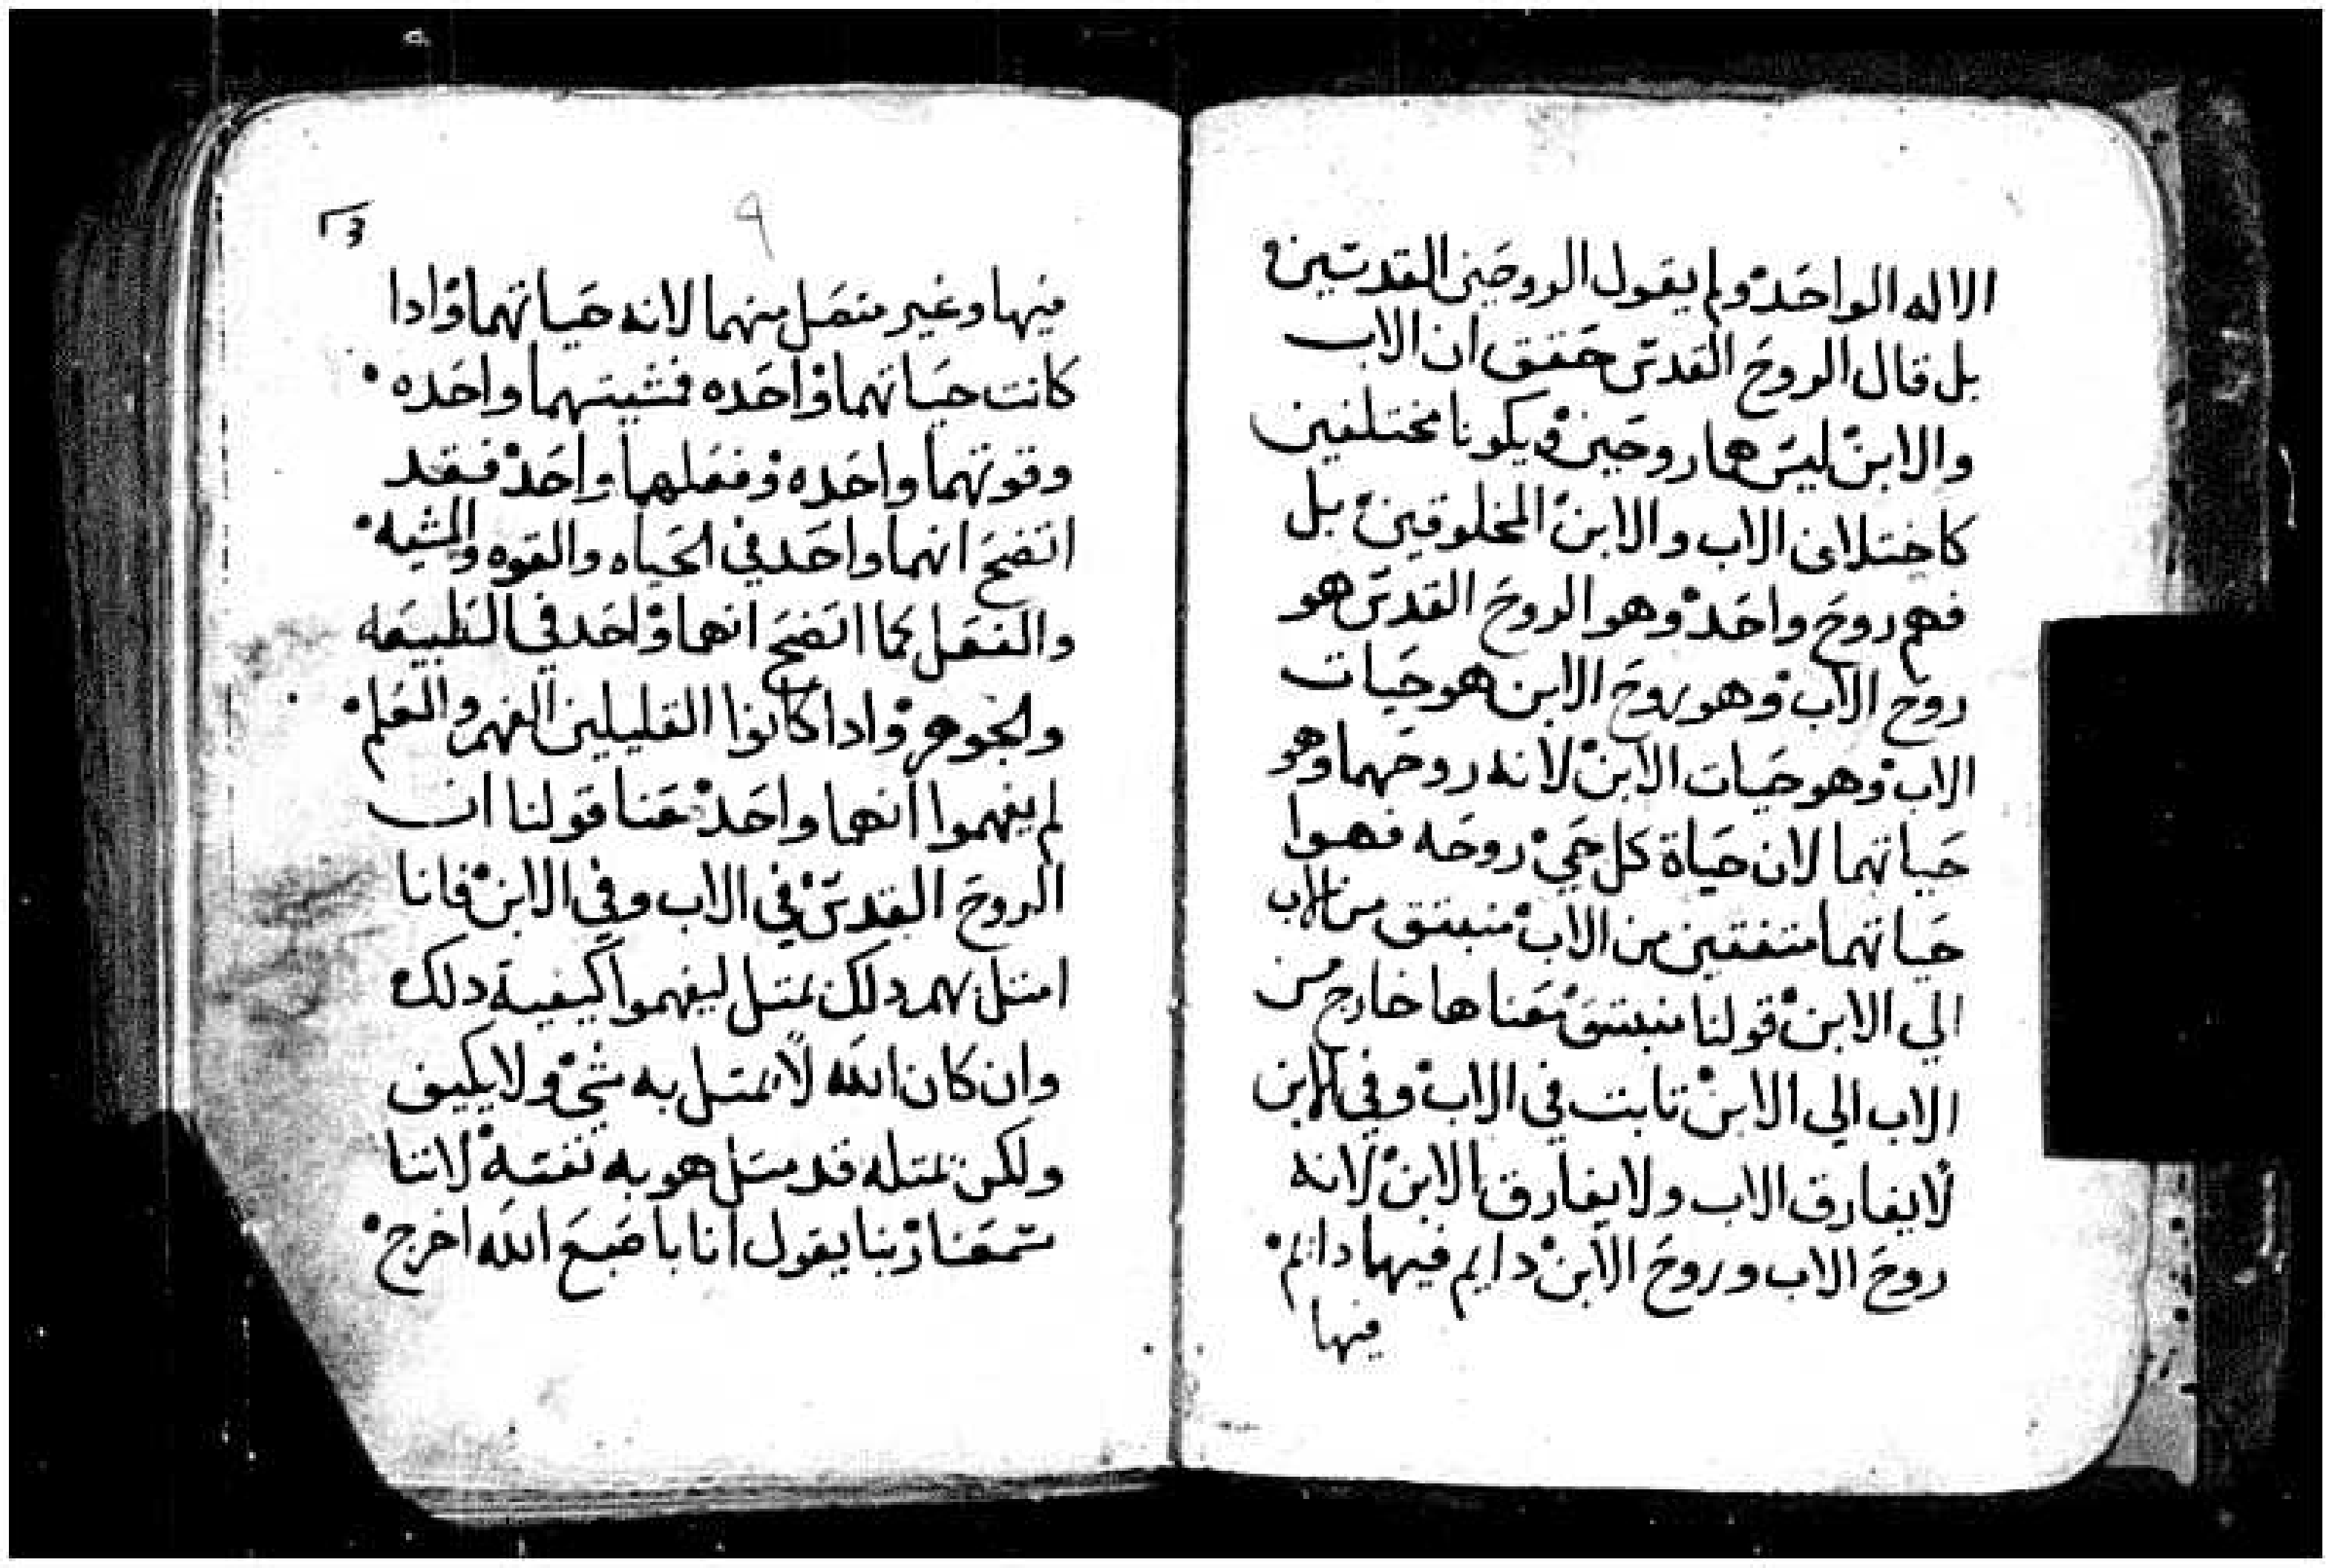 الاله الواحد ولم يقول الروحين القدسين
بل قال الروح القدس حقق ان الاب
والابن ليس هما روحين ويكونا مختلفين
كاختلاف الاب والابن المخلوقين بل
فهم روح واحد وهو الروح القدس هو
روح الاب وهو روح الابن هو حيات
الاب وهو حيات الابن لانه روحهما وهو
حياتهما لان حياة كل حي روحه فهوا
حياتهما متفقين من الاب منبتق من الاب
الي الابن قولنا منبتق معناها خارج من
الاب الي الابن تابت في الاب وفي الابن
لا يفارق الاب ولا يفارق الابن لانه
روح الاب وروح الابن دايم فيهما دائم
فيها
٩
فيها وغير منفصل منهما لانه حياتهما وادا
كانت حياتهما واحده فمشيتهما واحده
وقوتهما واحده وفعلهما واحد فقد
اتضح انهما واحد في الحياه والقوه والمشيه
والفعل كما اتضح انهما واحد في الطبيعه
والجوهر وادا كانوا القليلين الفهم والعلم
لم يفهموا انهما واحد معنا قولنا ان
الروح القدس في الاب وفي الابن فانا
امتل لهم دلك بمتل ليفهموا كيفية دلك
وان كان الله لا يمتل به شي ولا يكيف
ولكن نمتله قد متل هو به نفسه لاننا
سمعنا ربنا يقول انا باصبع الله اخرج